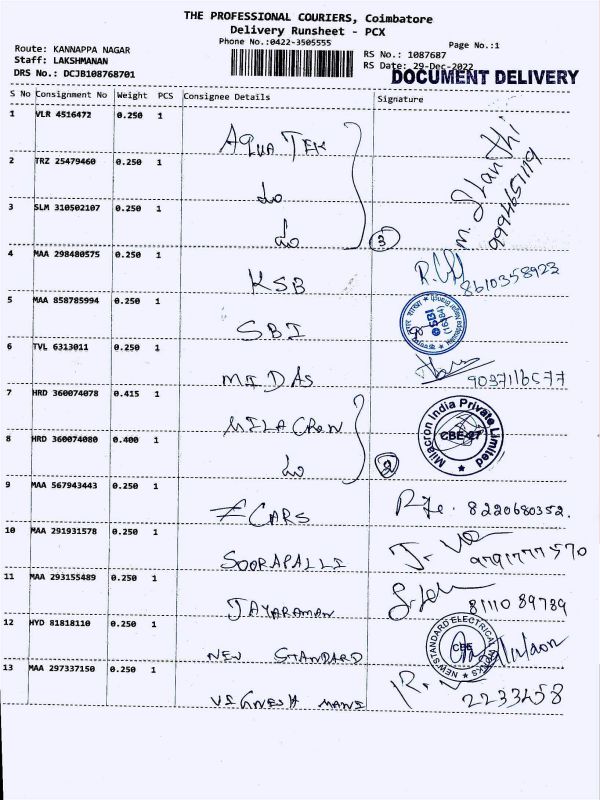 THE PROFESSIONAL COURIERS, Coimbatore
Delivery Runsheet - PCX
Phone No.:0422-3505555
Page No.:1
Route: KANNAPPA NAGAR
RS No.: 1087687
Staff: LAKSHMANAN
RS Date: 29-Dec-2022
DRS No.: DCJB108768701
DOCUMENT DELIVERY
S No Consignment No Weight PCS Consignee Details Signature
1 VLR 4516472 0.250 1 AQUA TEK
2 TRZ 25479460 0.250 1 do
3 SLM 310502107 0.250 1 do 3
4 MAA 298480575 0.250 1 KSB 8610358923
5 MAA 858785994 0.250 1 SBI
6 TVL 6313011 0.250 1 MIDAS
7 HRD 360074078 0.415 1 MILACRON Milacron India Private Limited CBE-27
8 HRD 360074080 0.400 1 do 2
9 MAA 567943443 0.250 1 CARS 8220680352.
10 MAA 291931578 0.250 1 SOORAPALLI 9791777570
11 MAA 293155489 0.250 1 JAYARAMAN 81110 89789
12 HYD 81818110 0.250 1 NEW STANDARD NEW STANDARD ELECTRICAL WORKS CBE
13 MAA 297337150 0.250 1 VIGNESH MANI 2233458